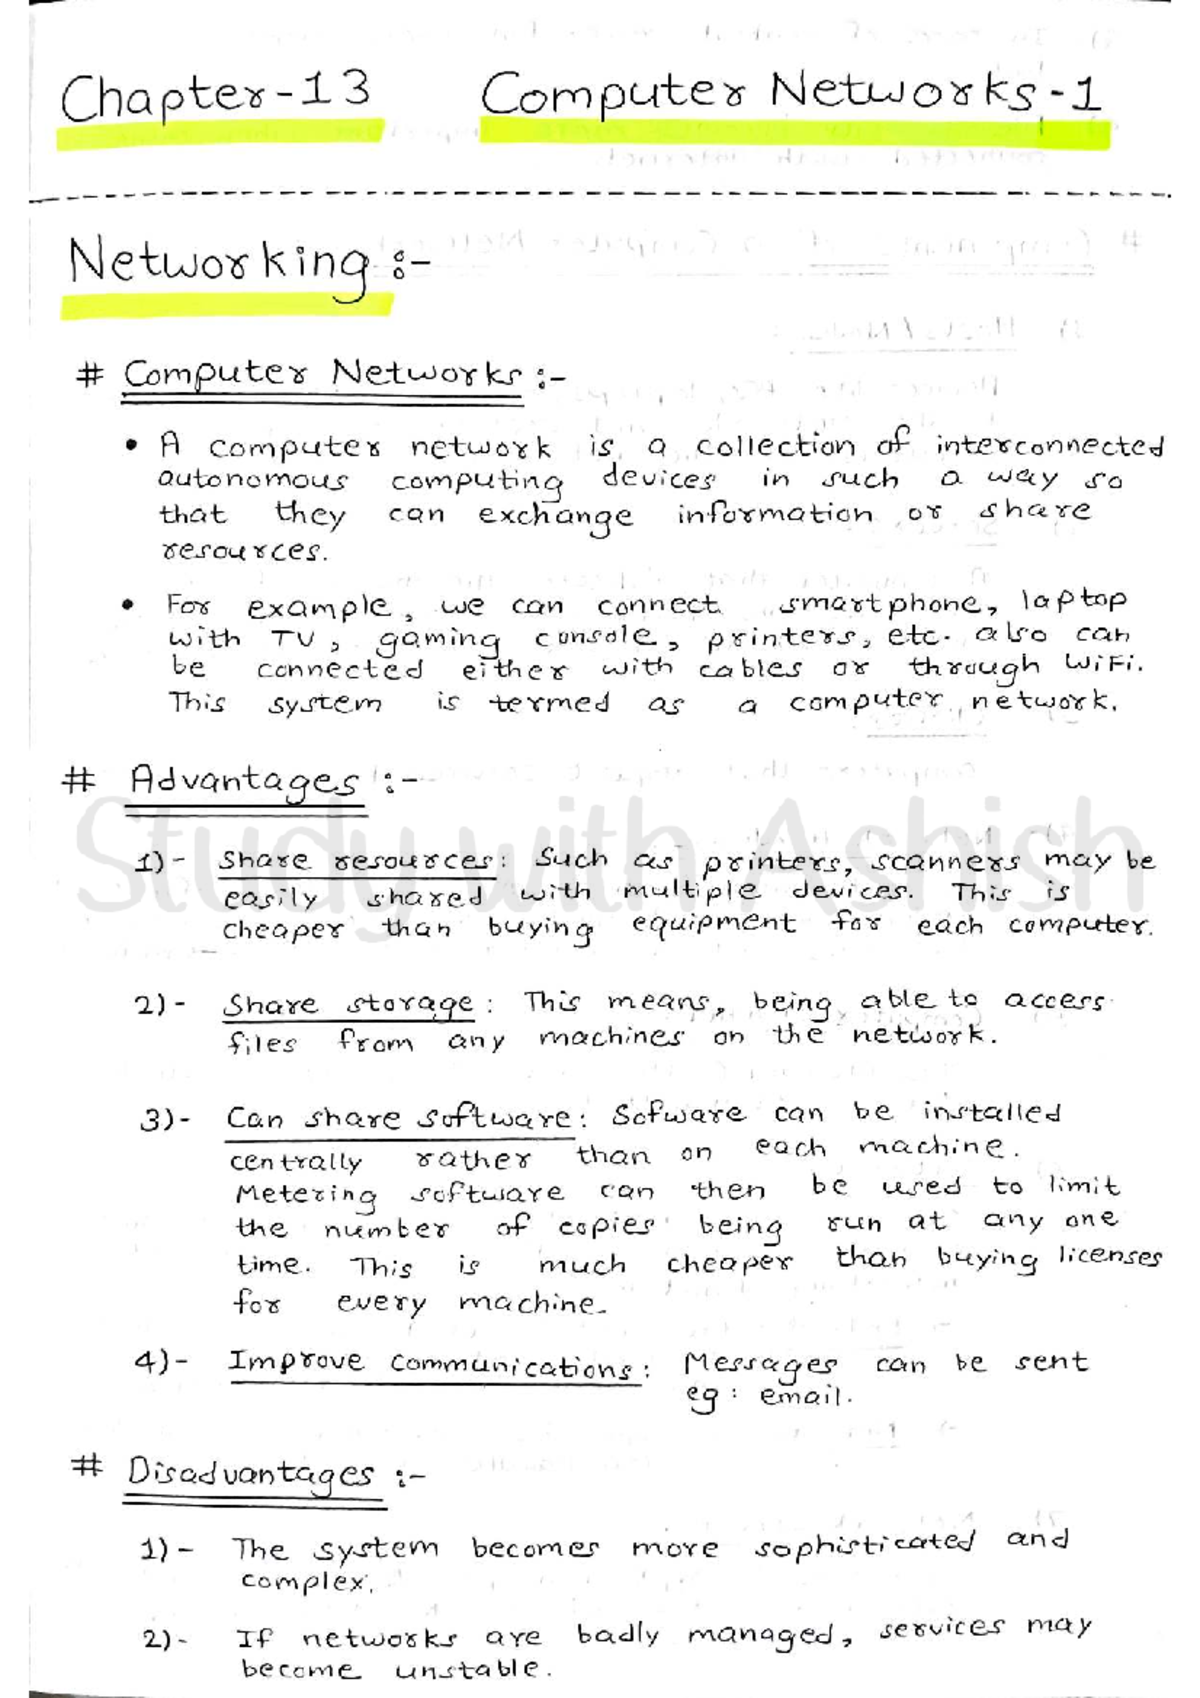 Chapter-13 Computer Networks-1
Networking :-
# Computer Networks :-
• A computer network is a collection of interconnected
autonomous computing devices in such a way so
that they can exchange information or share
resources.
• For example, we can connect smartphone, laptop
with TV, gaming console, printers, etc. also can
be connected either with cables or through WiFi.
This system is termed as a computer network.
# Advantages :-
Study with Ashish
1)- Share resources: Such as printers, scanners may be
easily shared with multiple devices. This is
cheaper than buying equipment for each computer.
2)- Share storage: This means, being able to access
files from any machines on the network.
3)- Can share software: Sofware can be installed
centrally rather than on each machine.
Metering software can then be used to limit
the number of copies being run at any one
time. This is much cheaper than buying licenses
for every machine.
4)- Improve communications: Messages can be sent
eg: email.
# Disadvantages :-
1)- The system becomes more sophisticated and
complex.
2)- If networks are badly managed, services may
become unstable.